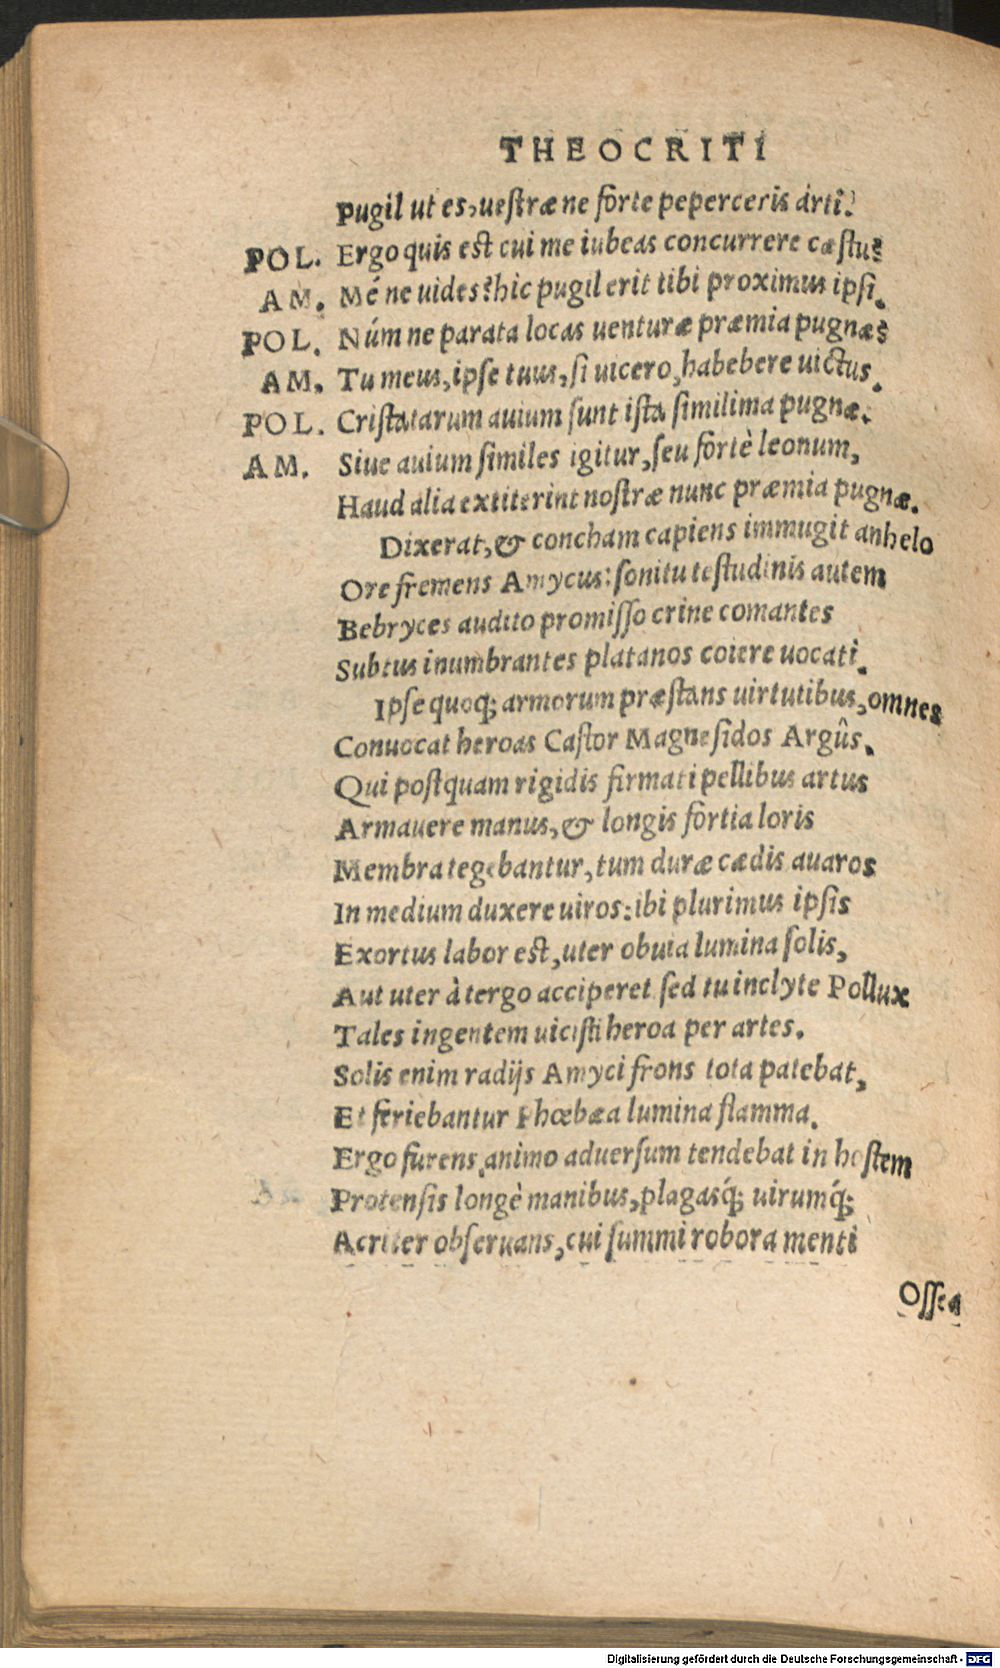 THEOCRITI
pugil ut es, uestræ ne forte peperceris arti.
POL. Ergo quis est cui me iubeas concurrere cæstu?
AM. Mé ne uides? hic pugil erit tibi proximus ipsi.
POL. Núm ne parata locas uenturæ præmia pugnæ?
AM. Tu meus, ipse tuus, si uicero, habebere uictus.
POL. Cristatarum auium sunt ista similima pugnæ.
AM. Siue auium similes igitur, seu fortè leonum,
Haud alia extiterint nostræ nunc præmia pugnæ.
Dixerat, & concham capiens immugit anhelo
Ore fremens Amycus: sonitu testudinis autem
Bebryces audito promisso crine comantes
Subtus inumbrantes platanos coiere uocati.
Ipse quoq; armorum præstans uirtutibus, omnes
Conuocat heroas Castor Magnesidos Argûs.
Qui postquam rigidis firmati pellibus artus
Armauere manus, & longis fortia loris
Membra tegebantur, tum duræ cædis auaros
In medium duxere uiros: ibi plurimus ipsis
Exortus labor est, uter obuia lumina solis,
Aut uter à tergo acciperet sed tu inclyte Pollux
Tales ingentem uicisti heroa per artes.
Solis enim radijs Amyci frons tota patebat,
Et feriebantur Phœbæa lumina flamma.
Ergo furens animo aduersum tendebat in hostem
Protensis longè manibus, plagasq́; uirumq́;
Acriter obseruans, cui summi robora menti
Ossea
Digitalisierung gefördert durch die Deutsche Forschungsgemeinschaft - DFG